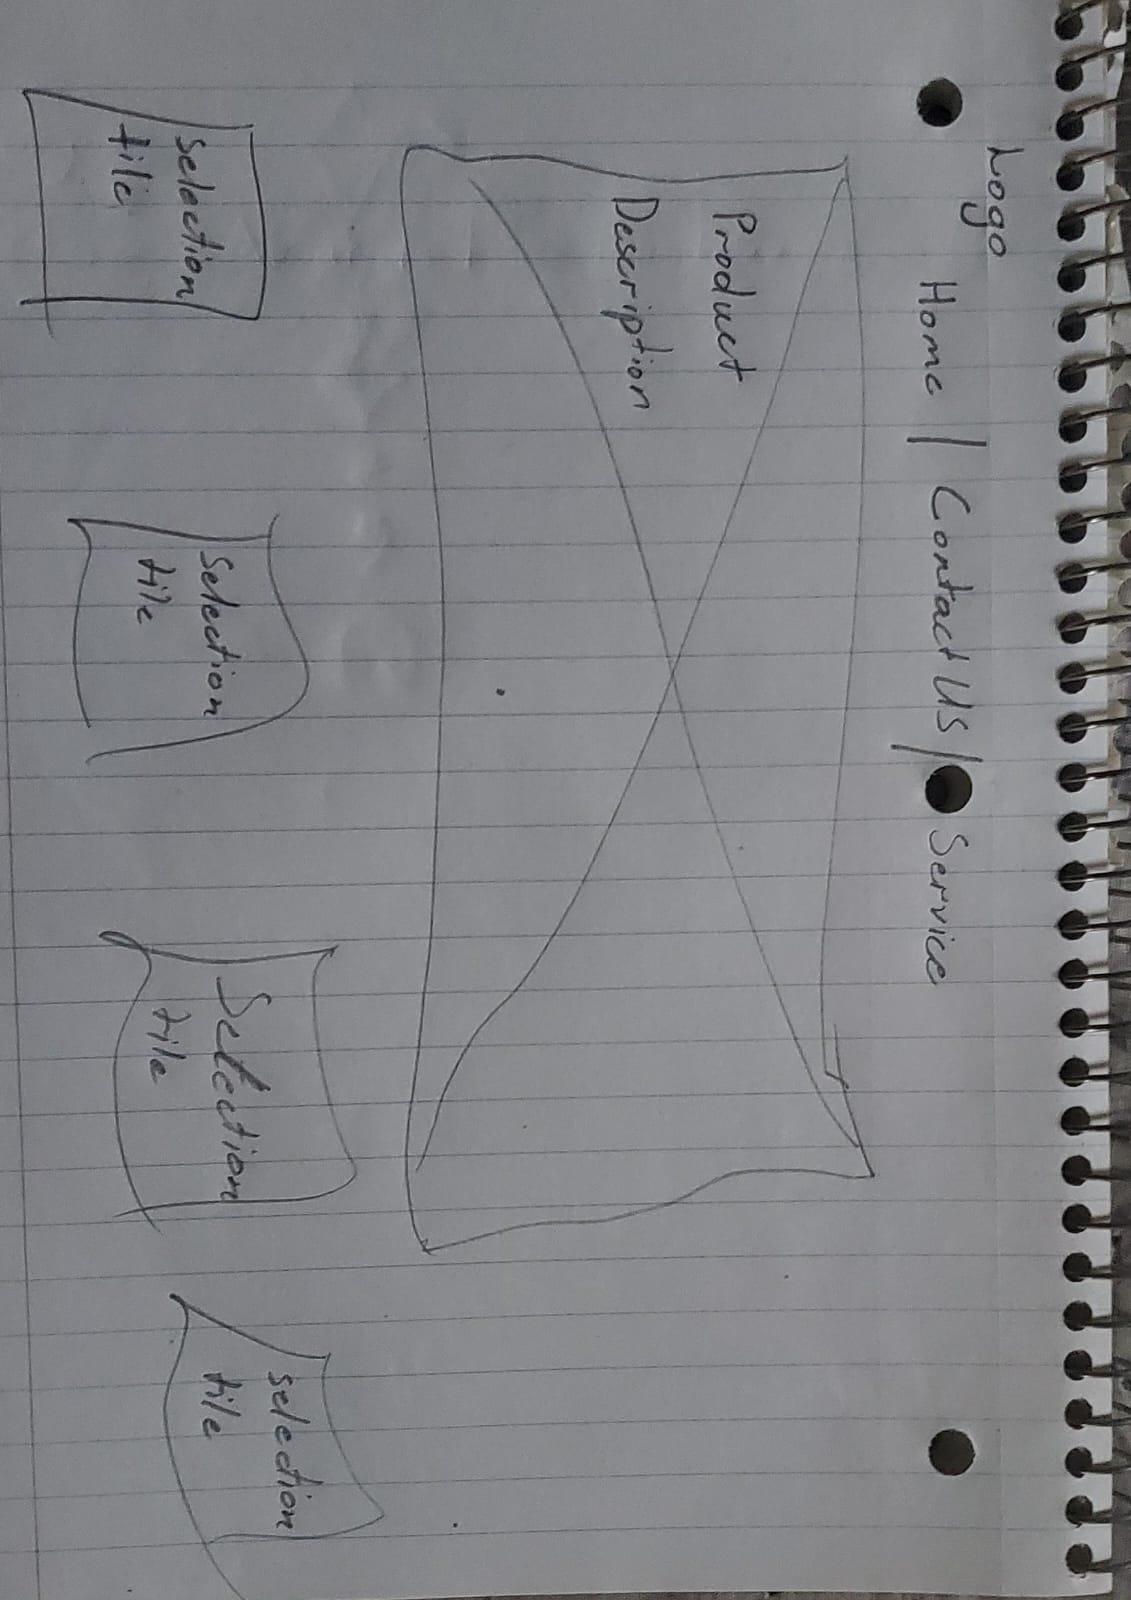 Logo
Home | Contact Us | Service
Product
Description
Selection
tile
Selection
tile
Selection
tile
selection
tile